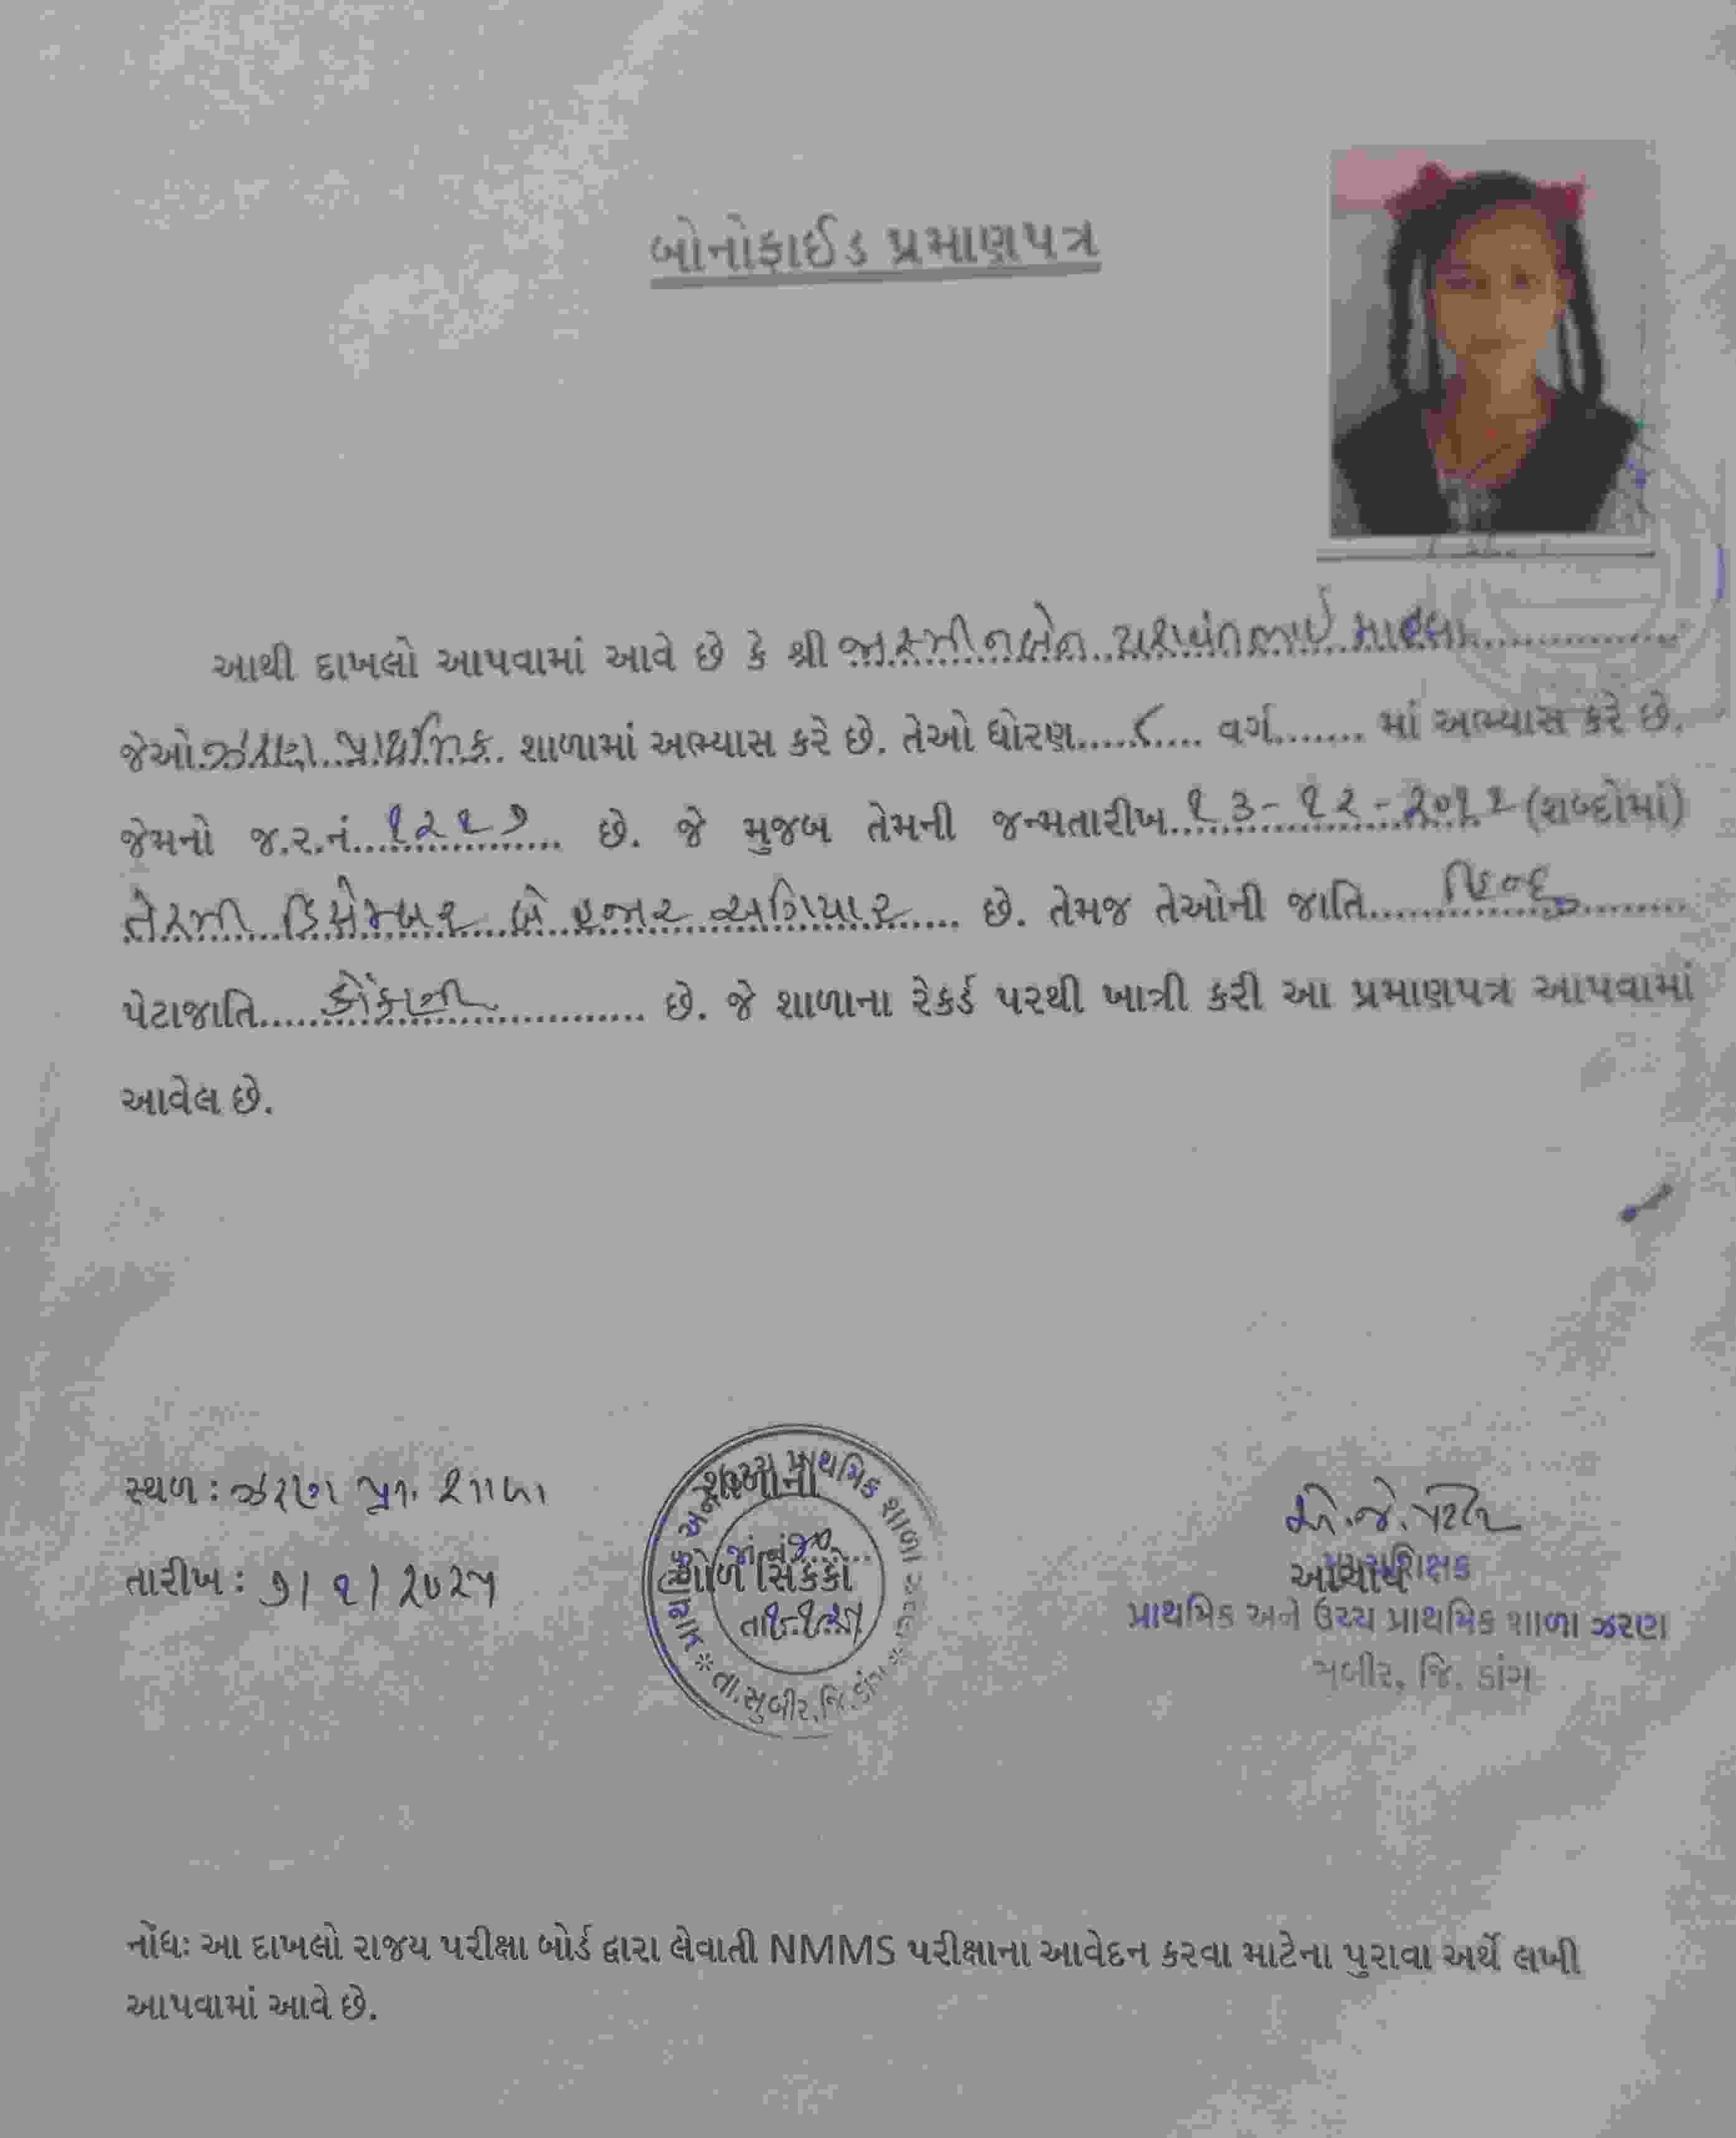 બોનોફાઈડ પ્રમાણપત્ર
આથી દાખલો આપવામાં આવે છે કે શ્રી જાસ્મીનબેન યશવંતભાઈ માહલા
જેઓ ઝરણ પ્રાથમિક શાળામાં અભ્યાસ કરે છે. તેઓ ધોરણ.....૮.... વર્ગ........ માં અભ્યાસ કરે છે.
જેમનો જ.ર.નં. ૧૨૨૭ છે. જે મુજબ તેમની જન્મતારીખ ૧૩-૧૨-૨૦૧૧ (શબ્દોમાં)
તેરમી ડિસેમ્બર બે હજાર અગિયાર છે. તેમજ તેઓની જાતિ હિન્દુ
પેટાજાતિ કોંકાની છે. જે શાળાના રેકર્ડ પરથી ખાત્રી કરી આ પ્રમાણપત્ર આપવામાં
આવેલ છે.
સ્થળ : ઝરણ પ્રા. શાળા
તારીખ : ૭/૧/૨૦૨૫
શાળાનો
ગોળ સિક્કો
તા.સુબીર,જિ.ડાંગ
એ.જે.પટેલ
આચાર્ય
પ્રાથમિક અને ઉચ્ચ પ્રાથમિક શાળા ઝરણ
સુબીર, જિ. ડાંગ
નોંધઃ આ દાખલો રાજય પરીક્ષા બોર્ડ દ્વારા લેવાતી NMMS પરીક્ષાના આવેદન કરવા માટેના પુરાવા અર્થે લખી
આપવામાં આવે છે.